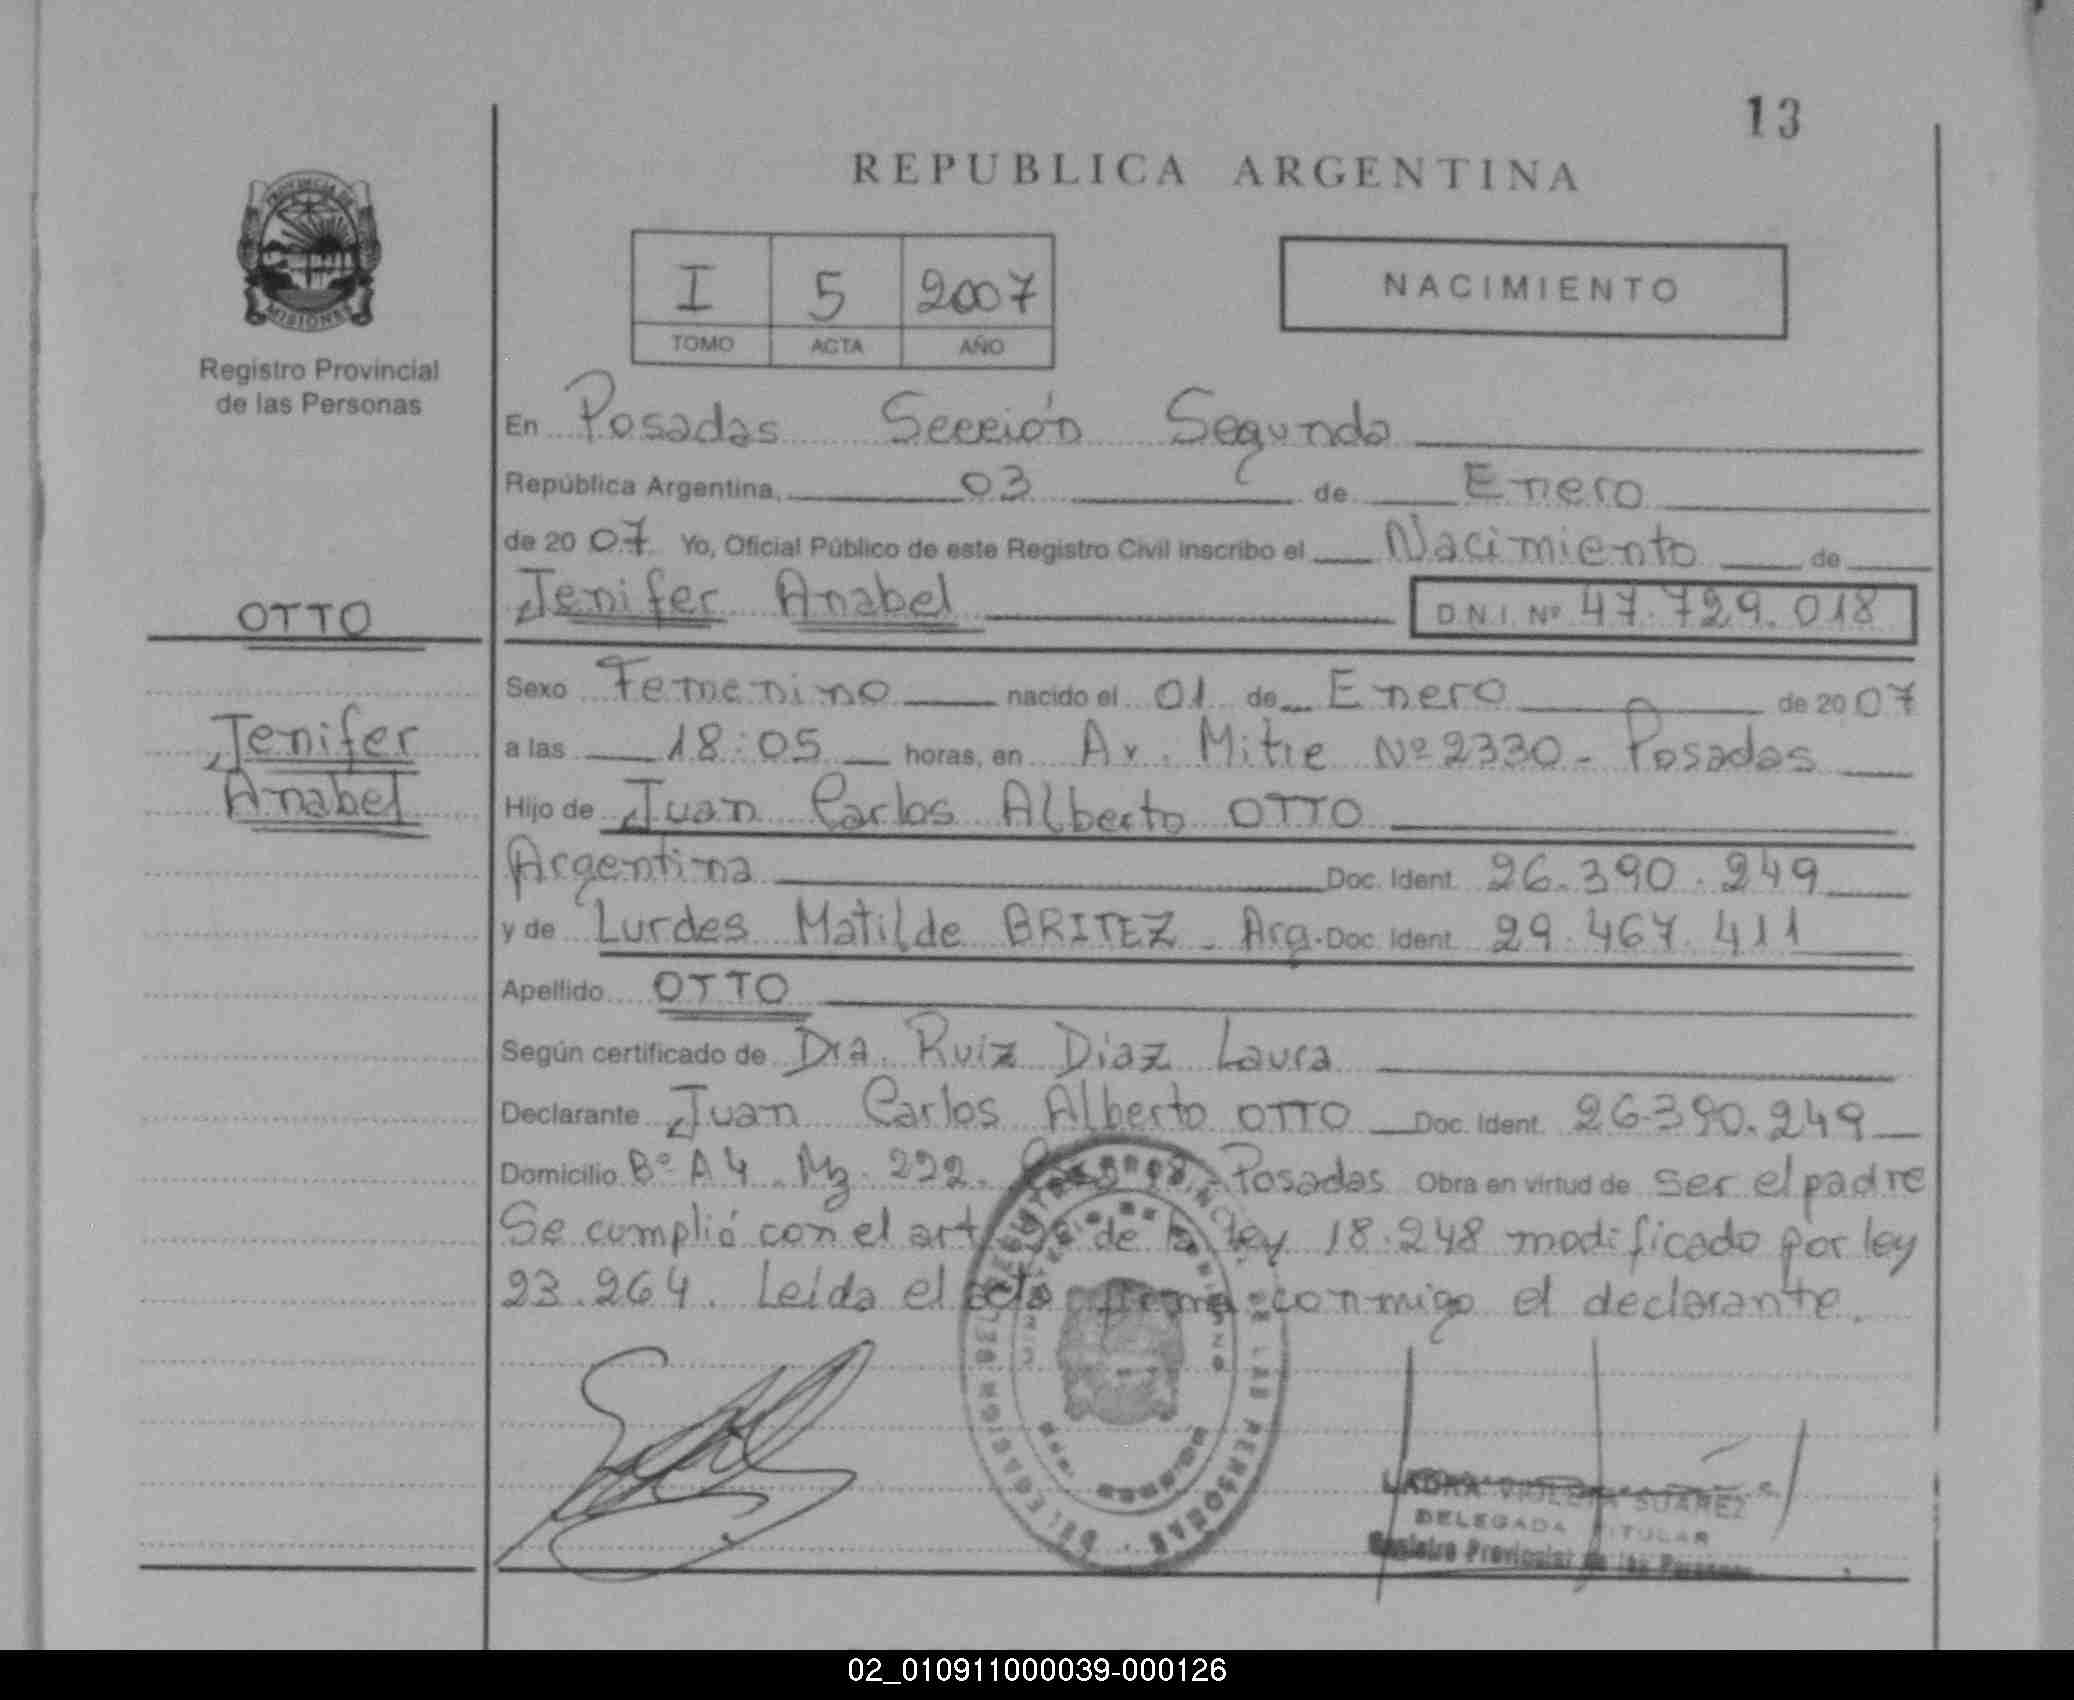 13
REPUBLICA ARGENTINA
PROVINCIA DE
MISIONES
Registro Provincial
de las Personas
I 5 2007
TOMO ACTA AÑO
NACIMIENTO
En Posadas Sección Segunda
República Argentina, 03 de Enero
de 2007 Yo, Oficial Público de este Registro Civil inscribo el Nacimiento de
OTTO
Jenifer Anabel D.N.I. Nº 47.729.018
Sexo Femenino nacido el 01 de Enero de 2007
Jenifer
Anabel
a las 18:05 horas, en Av. Mitre Nº 2330 - Posadas
Hijo de Juan Carlos Alberto OTTO
Argentina Doc. Ident. 26.390.249
y de Lurdes Matilde BRITEZ - Arg. Doc. Ident. 29.467.411
Apellido OTTO
Según certificado de Dra. Ruiz Diaz Laura
Declarante Juan Carlos Alberto OTTO Doc. Ident. 26.390.249
Domicilio Bº A4 Mz. 222. Posadas Obra en virtud de ser el padre
Se cumplió con el art de la ley 18.248 modificado por ley
23.264. Leida el acta firma conmigo el declarante.
DE LAS PERSONAS
VIOLETA SUAREZ
DELEGADA TITULAR
Registro Provincial de las Personas
02_010911000039-000126